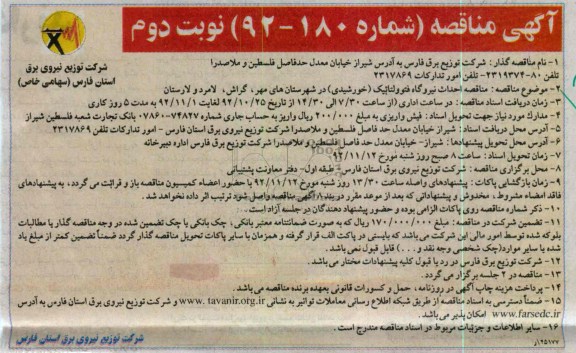 آگهی مناقصه (شماره ۱۸۰-۹۲) نوبت دوم
شرکت توزیع نیروی برق
استان فارس (سهامی خاص)
۱- نام مناقصه گذار: شرکت توزیع برق فارس به آدرس شیراز خیابان معدل حدفاصل فلسطین و ملاصدرا
تلفن ۸۰-۲۳۱۹۳۷۴- تلفن امور تدارکات ۲۳۱۷۸۶۹
۲- موضوع مناقصه: مناقصه احداث نیروگاه فتوولتائیک (خورشیدی) در شهرستان های مهر، گراش، لامرد و لارستان
۳- زمان دریافت اسناد مناقصه: در ساعت اداری (از ساعت ۷/۳۰ الی ۱۴/۳۰ از تاریخ ۹۲/۱۰/۲۵ لغایت ۹۲/۱۱/۱ به مدت ۵ روز کاری
۴- مدارک مورد نیاز جهت تحویل اسناد: فیش واریزی به مبلغ ۲۰۰/۰۰۰ ریال واریز به حساب جاری شماره ۷۴۸۲۷-۰۷۸۶۰ بانک تجارت شعبه فلسطین شیراز
۵- آدرس محل دریافت اسناد: شیراز خیابان معدل حد فاصل فلسطین و ملاصدرا شرکت توزیع نیروی برق استان فارس - امور تدارکات تلفن ۲۳۱۷۸۶۹
۶- آدرس محل تحویل پیشنهادها: شیراز- خیابان معدل حد فاصل فلسطین و ملاصدرا شرکت توزیع برق فارس اداره دبیرخانه
۷- زمان تحویل اسناد: ساعت ۸ صبح روز شنبه مورخ ۹۲/۱۱/۱۲
۸- محل برگزاری مناقصه: شرکت توزیع نیروی برق استان فارس- طبقه اول- دفتر معاونت پشتیبانی
۹- زمان بازگشایی پاکات: پیشنهادهای واصله ساعت ۱۳/۳۰ روز شنبه مورخ ۹۲/۱۱/۱۲ با حضور اعضاء کمیسیون مناقصه باز و قرائت می گردد، به پیشنهادهای
فاقد امضاء مشروط، مخدوش و پیشنهاداتی که بعد از موعد مقرر در بند ۸ آگهی مناقصه واصل شود ترتیب اثر داده نخواهد شد.
۱۰- ذکر شماره مناقصه روی پاکات الزامی بوده و حضور پیشنهاد دهندگان در جلسه آزاد است.
۱۱- تضمین شرکت در مناقصه: مبلغ ۱۷۰/۰۰۰/۰۰۰ ریال که به صورت ضمانتنامه معتبر بانکی، چک بانکی یا چک تضمین شده در وجه مناقصه گذار یا مطالبات
بلوکه شده توسط امور مالی این شرکت می باشد که بایستی در پاکت الف قرار گرفته و همزمان با سایر پاکات تحویل مناقصه گذار گردد ضمناً تضمین کمتر از مبلغ یاد
شده یا سایر موارد (چک شخصی وجه نقد و ...) قابل قبول نمی باشد.
۱۲- شرکت توزیع برق فارس در رد یا قبول کلیه پیشنهادات مختار می باشد.
۱۳- مناقصه در ۲ جلسه برگزار می گردد.
۱۴- پرداخت هزینه چاپ آگهی در روزنامه، حمل و کسورات قانونی بعهده برنده مناقصه می باشد.
۱۵- ضمناً دسترسی به اسناد مناقصه از طریق شبکه اطلاع رسانی معاملات توانیر به نشانی www.tavanir.org.ir و شرکت توزیع نیروی برق استان فارس به آدرس
www.farsedc.ir امکان پذیر می باشد.
۱۶- سایر اطلاعات و جزئیات مربوط در اسناد مناقصه مندرج است.
شرکت توزیع نیروی برق استان فارس
۱۲۵۱۷۷/و